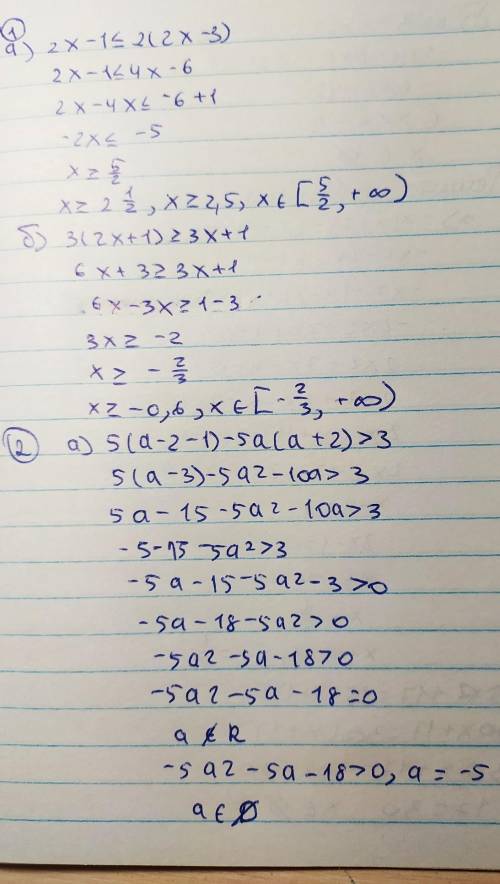 ①
а) 2x-1≤2(2x-3)
2x-1≤4x-6
2x-4x≤-6+1
-2x≤ -5
x≥ 5/2
x≥ 2 1/2, x≥2,5, x∈[5/2, +∞)
б) 3(2x+1)≥3x+1
6x+3≥3x+1
6x-3x≥1-3
3x≥ -2
x≥ -2/3
x≥-0,6, x∈[-2/3, +∞)
② а) 5(a-2-1)-5a(a+2)>3
5(a-3)-5a2-10a>3
5a-15-5a2-10a>3
-5-15-5a2>3
-5a-15-5a2-3>0
-5a-18-5a2>0
-5a2-5a-18>0
-5a2-5a-18=0
a∉R
-5a2-5a-18>0, a=-5
a∈∅